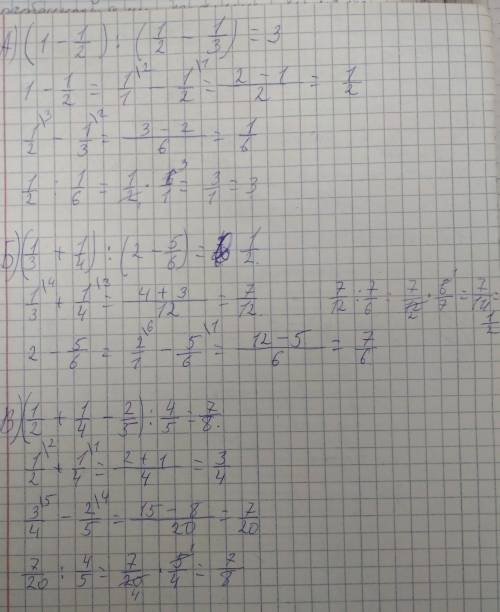 А) (1 - 1/2) : (1/2 - 1/3) = 3
1 - 1/2 = 1/1\2 - 1/2\1 = 2 - 1/2 = 1/2
1/2\3 - 1/3\2 = 3 - 2/6 = 1/6
1/2 : 1/6 = 1/2 · 6/1\3 = 3/1 = 3
Б) (1/3 + 1/4) : (2 - 5/6) = 1/2.
1/3\4 + 1/4\3 = 4 + 3/12 = 7/12. 7/12 : 7/6 = 7/12 · 6/7 = 7/14 = 1/2
2 - 5/6 = 2/1\6 - 5/6\1 = 12 - 5/6 = 7/6
В) (1/2 + 1/4 - 2/5) : 4/5 = 7/8.
1/2\2 + 1/4\1 = 2 + 1/4 = 3/4
3/4\5 - 2/5\4 = 15 - 8/20 = 7/20
7/20 : 4/5 = 7/20 4 · 5/4 1 = 7/8